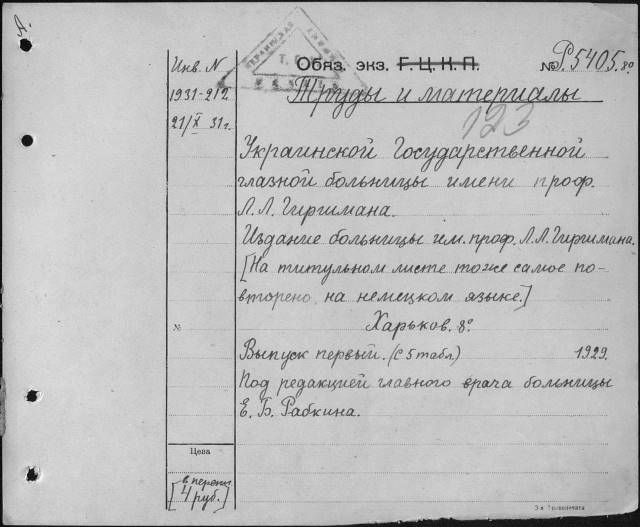 Инв. N
1931-212
21/X 31 г.
Обяз. экз. Г.Ц.К.П.
№ Р.5405.8º
Труды и материалы
123
Украинской Государственной
глазной больницы имени проф.
Л.Л. Гиршмана.
Издание больницы им. проф. Л.Л. Гиршмана.
[На титульном листе тоже самое по-
вторено на немецком языке.]
Харьков. 8º
№
Выпуск первый. (С 5 табл.) 1929.
Под редакцией главного врача больницы
Е. Б. Рабкина.
Цена
[в перепл.
4 руб.]